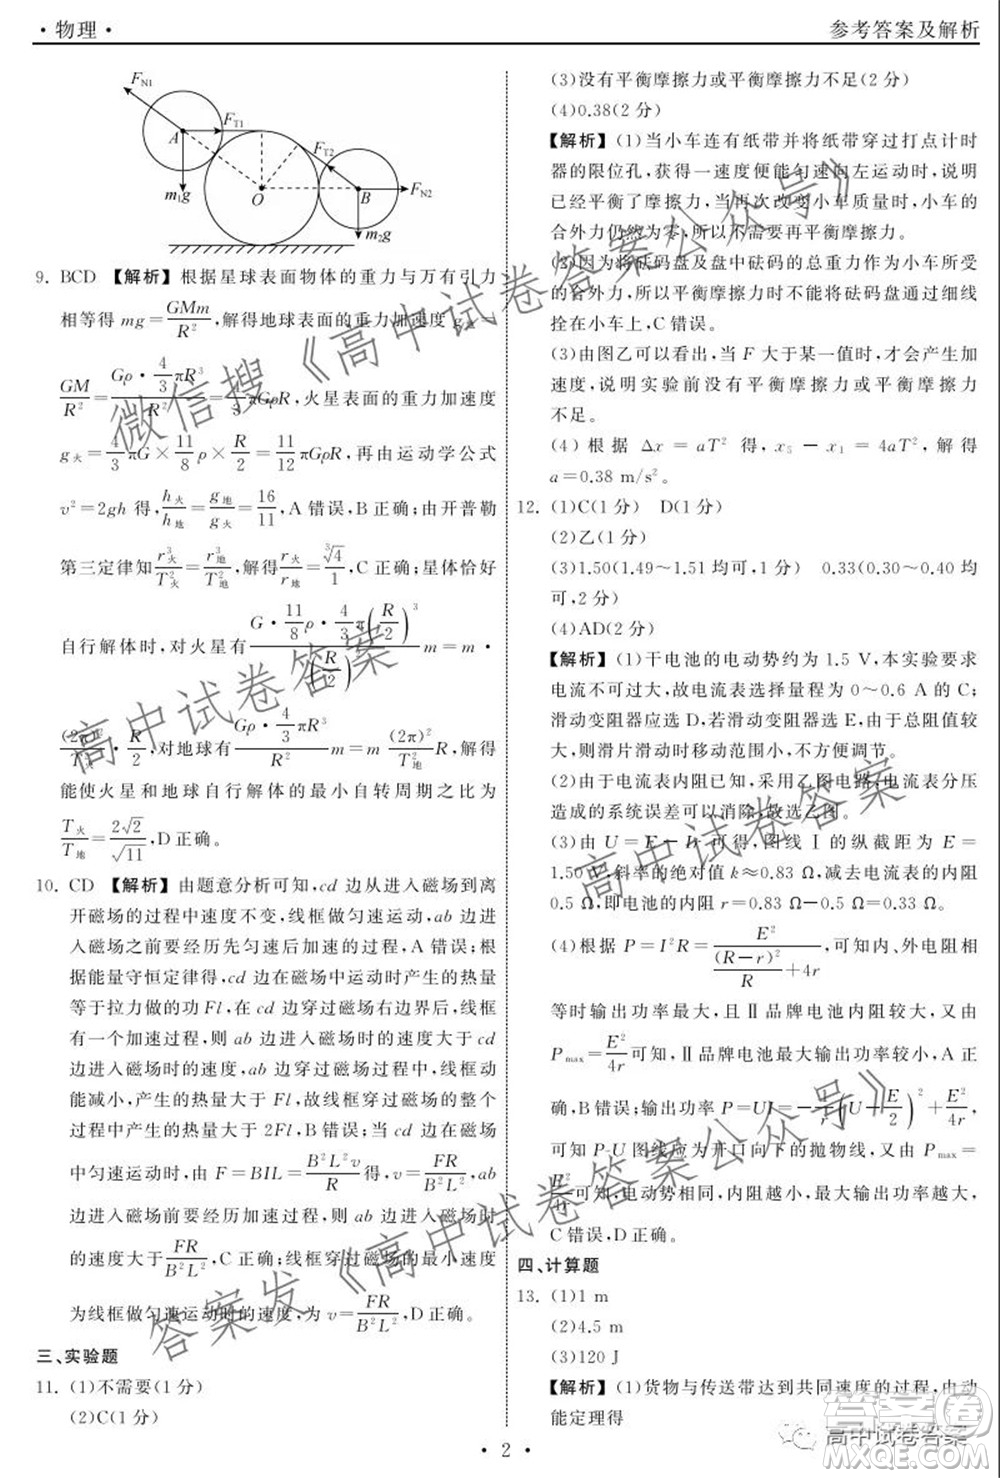 ·物理·
参考答案及解析
F_N1
F_T1
A
m₁g
F_T2
O
B
F_N2
m₂g
9. BCD 【解析】根据星球表面物体的重力与万有引力
相等得 mg=GMm/R²,解得地球表面的重力加速度 g地=
GM/R²=Gρ·4/3πR³/R²=4/3πGρR,火星表面的重力加速度
g火=4/3πG×11/8ρ×R/2=11/12πGρR,再由运动学公式
v²=2gh 得,h火/h地=g地/g火=16/11,A 错误,B 正确;由开普勒
第三定律知r³火/T²火=r³地/T²地,解得r火/r地=∛4/1,C 正确;星体恰好
自行解体时,对火星有G·11/8ρ·4/3π(R/2)³/(R/2)²m=m·
(2π)²/T²火·R/2,对地球有Gρ·4/3πR³/R²m=m(2π)²/T²地R,解得
能使火星和地球自行解体的最小自转周期之比为
T火/T地=2√2/√11,D 正确。
10. CD 【解析】由题意分析可知,cd 边从进入磁场到离
开磁场的过程中速度不变,线框做匀速运动,ab 边进
入磁场之前要经历先匀速后加速的过程,A 错误;根
据能量守恒定律得,cd 边在磁场中运动时产生的热量
等于拉力做的功 Fl,在 cd 边穿过磁场右边界后,线框
有一个加速过程,则 ab 边进入磁场时的速度大于 cd
边进入磁场时的速度,ab 边穿过磁场过程中,线框动
能减小,产生的热量大于 Fl,故线框穿过磁场的整个
过程中产生的热量大于 2Fl,B 错误;cd 边在磁场
中匀速运动时,由 F=BIL=B²L²v/R得,v=FR/B²L²,ab
边进入磁场前要经历加速过程,故 ab 边进入磁场时
的速度大于FR/B²L²,C 正确;线框穿过磁场的最小速度
为线框做匀速运动时的速度,为 v=FR/B²L²,D 正确。
三、实验题
11. (1)不需要(1 分)
(2)C(1 分)
(3)没有平衡摩擦力或平衡摩擦力不足(2 分)
(4)0.38(2 分)
【解析】(1)当小车连有纸带并将纸带穿过打点计时
器的限位孔,获得一速度便能匀速向左运动时,说明
已经平衡了摩擦力,当再次改变小车质量时,小车的
合外力仍然为零,所以不需要再平衡摩擦力。
(2)因为要将砝码盘及盘中砝码的总重力作为小车所受
的合外力,所以平衡摩擦力时不能将砝码盘通过细线
拴在小车上,C 错误。
(3)由图乙可以看出,当 F 大于某一值时,才会产生加
速度,说明实验前没有平衡摩擦力或平衡摩擦力
不足。
(4)根据 Δx=aT² 得,x₅-x₁=4aT²,解得
a=0.38 m/s²。
12. (1)C(1 分) D(1 分)
(2)乙(1 分)
(3)1.50(1.49~1.51 均可,1 分) 0.33(0.30~0.40 均
可,2 分)
(4)AD(2 分)
【解析】(1)干电池的电动势约为 1.5 V,本实验要求
电流不可过大,故电流表选择量程为 0~0.6 A 的 C;
滑动变阻器应选 D,若滑动变阻器选 E,由于总阻值较
大,则滑片滑动时移动范围小,不方便调节。
(2)由于电流表内阻已知,采用乙图电路,电流表分压
造成的系统误差可以消除,故选乙图。
(3)由 U=E-Ir 可得,图线Ⅰ的纵截距为 E=
1.50 V,斜率的绝对值为 k≈0.83 Ω,减去电流表内阻
0.5 Ω,即电池的内阻 r=0.83 Ω-0.5 Ω=0.33 Ω。
(4)根据 P=I²R=E²/((R-r)²/R+4r),可知内、外电阻相
等时输出功率最大,且Ⅱ品牌电池内阻较大,又由
Pmax=E²/4r可知,Ⅱ品牌电池最大输出功率较小,A 正
确,B 错误;输出功率 P=UI=-1/r(U-E/2)²+E²/4r,
可知 P-U 图线应为开口向下的抛物线,又由 Pmax=
E²/4r可知,电动势相同,内阻越小,最大输出功率越大,
C 错误,D 正确。
四、计算题
13. (1)1 m
(2)4.5 m
(3)120 J
【解析】(1)货物与传送带达到共同速度的过程,由动
能定理得
·2·
微信搜《高中试卷答案公众号》
高中试卷答案
高中试卷答案
答案发《高中试卷答案公众号》
高中试卷答案
答案圈
MXQE.COM